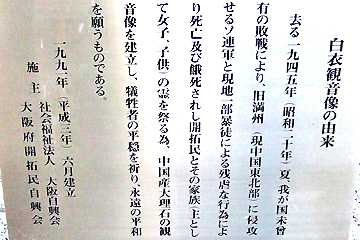 白衣観音像の由来
去る一九四五年（昭和二十年）夏、我が国未曾
有の敗戦により、旧満州（現中国東北部）に侵攻
せるソ連軍と現地一部暴徒による残虐な行為によ
り死亡及び餓死されし開拓民とその家族（主とし
て女子、子供）の霊を祭る為、中国産大理石の観
音像を建立し、犠牲者の平穏を祈り、永遠の平和
を願うものである。
一九九一年（平成三年）六月建立
社会福祉法人 大阪自興会
施主 大阪府開拓民自興会